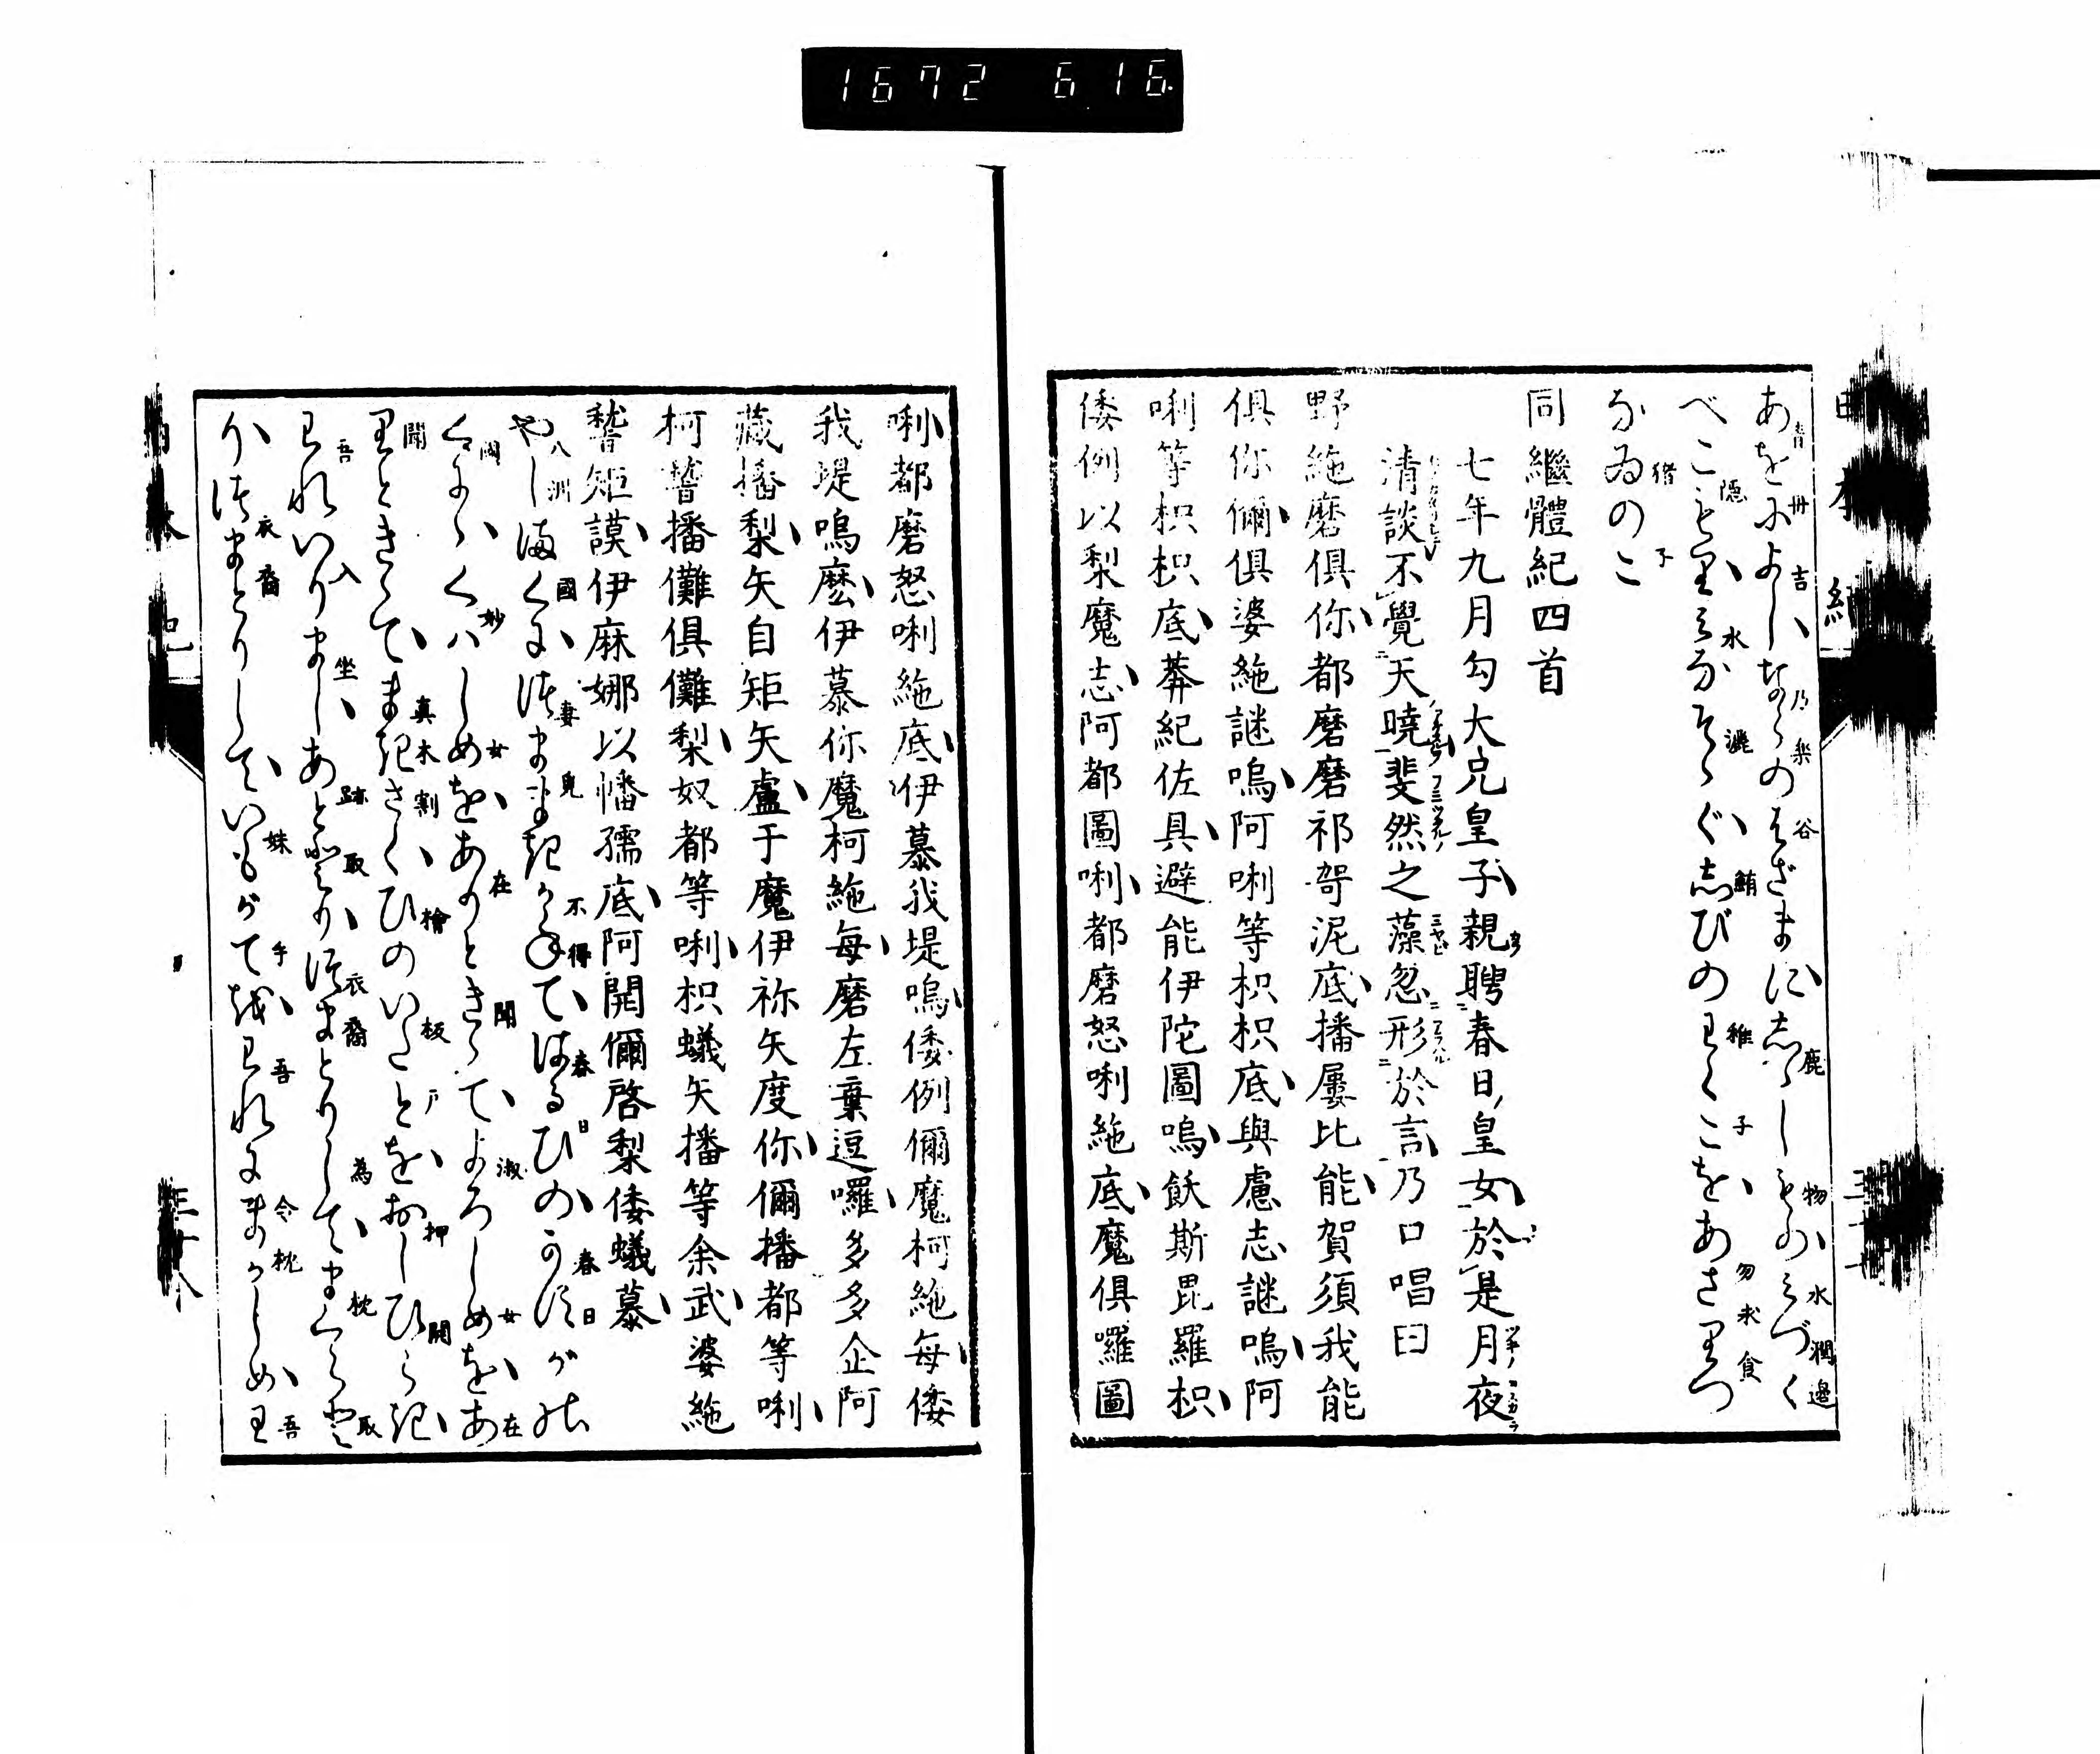 1672 616
あをによしならのはざまにししじもの水づく
べこもりみなそゝぐしびのわくごをあさりづ
なゐのこ
同繼體紀四首
七年九月勾大兄皇子親聘春日皇女於是月夜
清談不覺天曉斐然之藻忽形於言乃口唱曰
野絁磨俱你都磨磨祁哿泥底播屢比能賀須我能
俱你儞俱婆絁謎嗚阿唎等枳枳底與慮志謎嗚阿
唎等枳枳底莾紀佐具避能伊陀圖嗚飫斯毘羅枳
倭例以梨魔志阿都圖唎都磨怒唎絁底魔俱囉圖
唎都磨怒唎絁底伊慕我堤嗚倭例儞魔柯絁每倭
我堤嗚麽伊慕你魔柯絁每磨左棄逗囉多多企阿
藏播梨矢自矩矢盧于魔伊祢矢度你儞播都等唎
柯䳲播儺俱儺梨奴都等唎枳蟻矢播等余武婆絁
稽矩謨伊麻娜以幡孺底阿開儞啓梨倭蟻慕
やしまくにつままきかねてはるひのかすがの
くにゝくはしめをありときゝてよろしめをあ
りときゝてまきさくひのいたとをおしひらき
われいりましあととりつまとりしてまくらと
りつまとりしていもがてをわれにまかしめわ